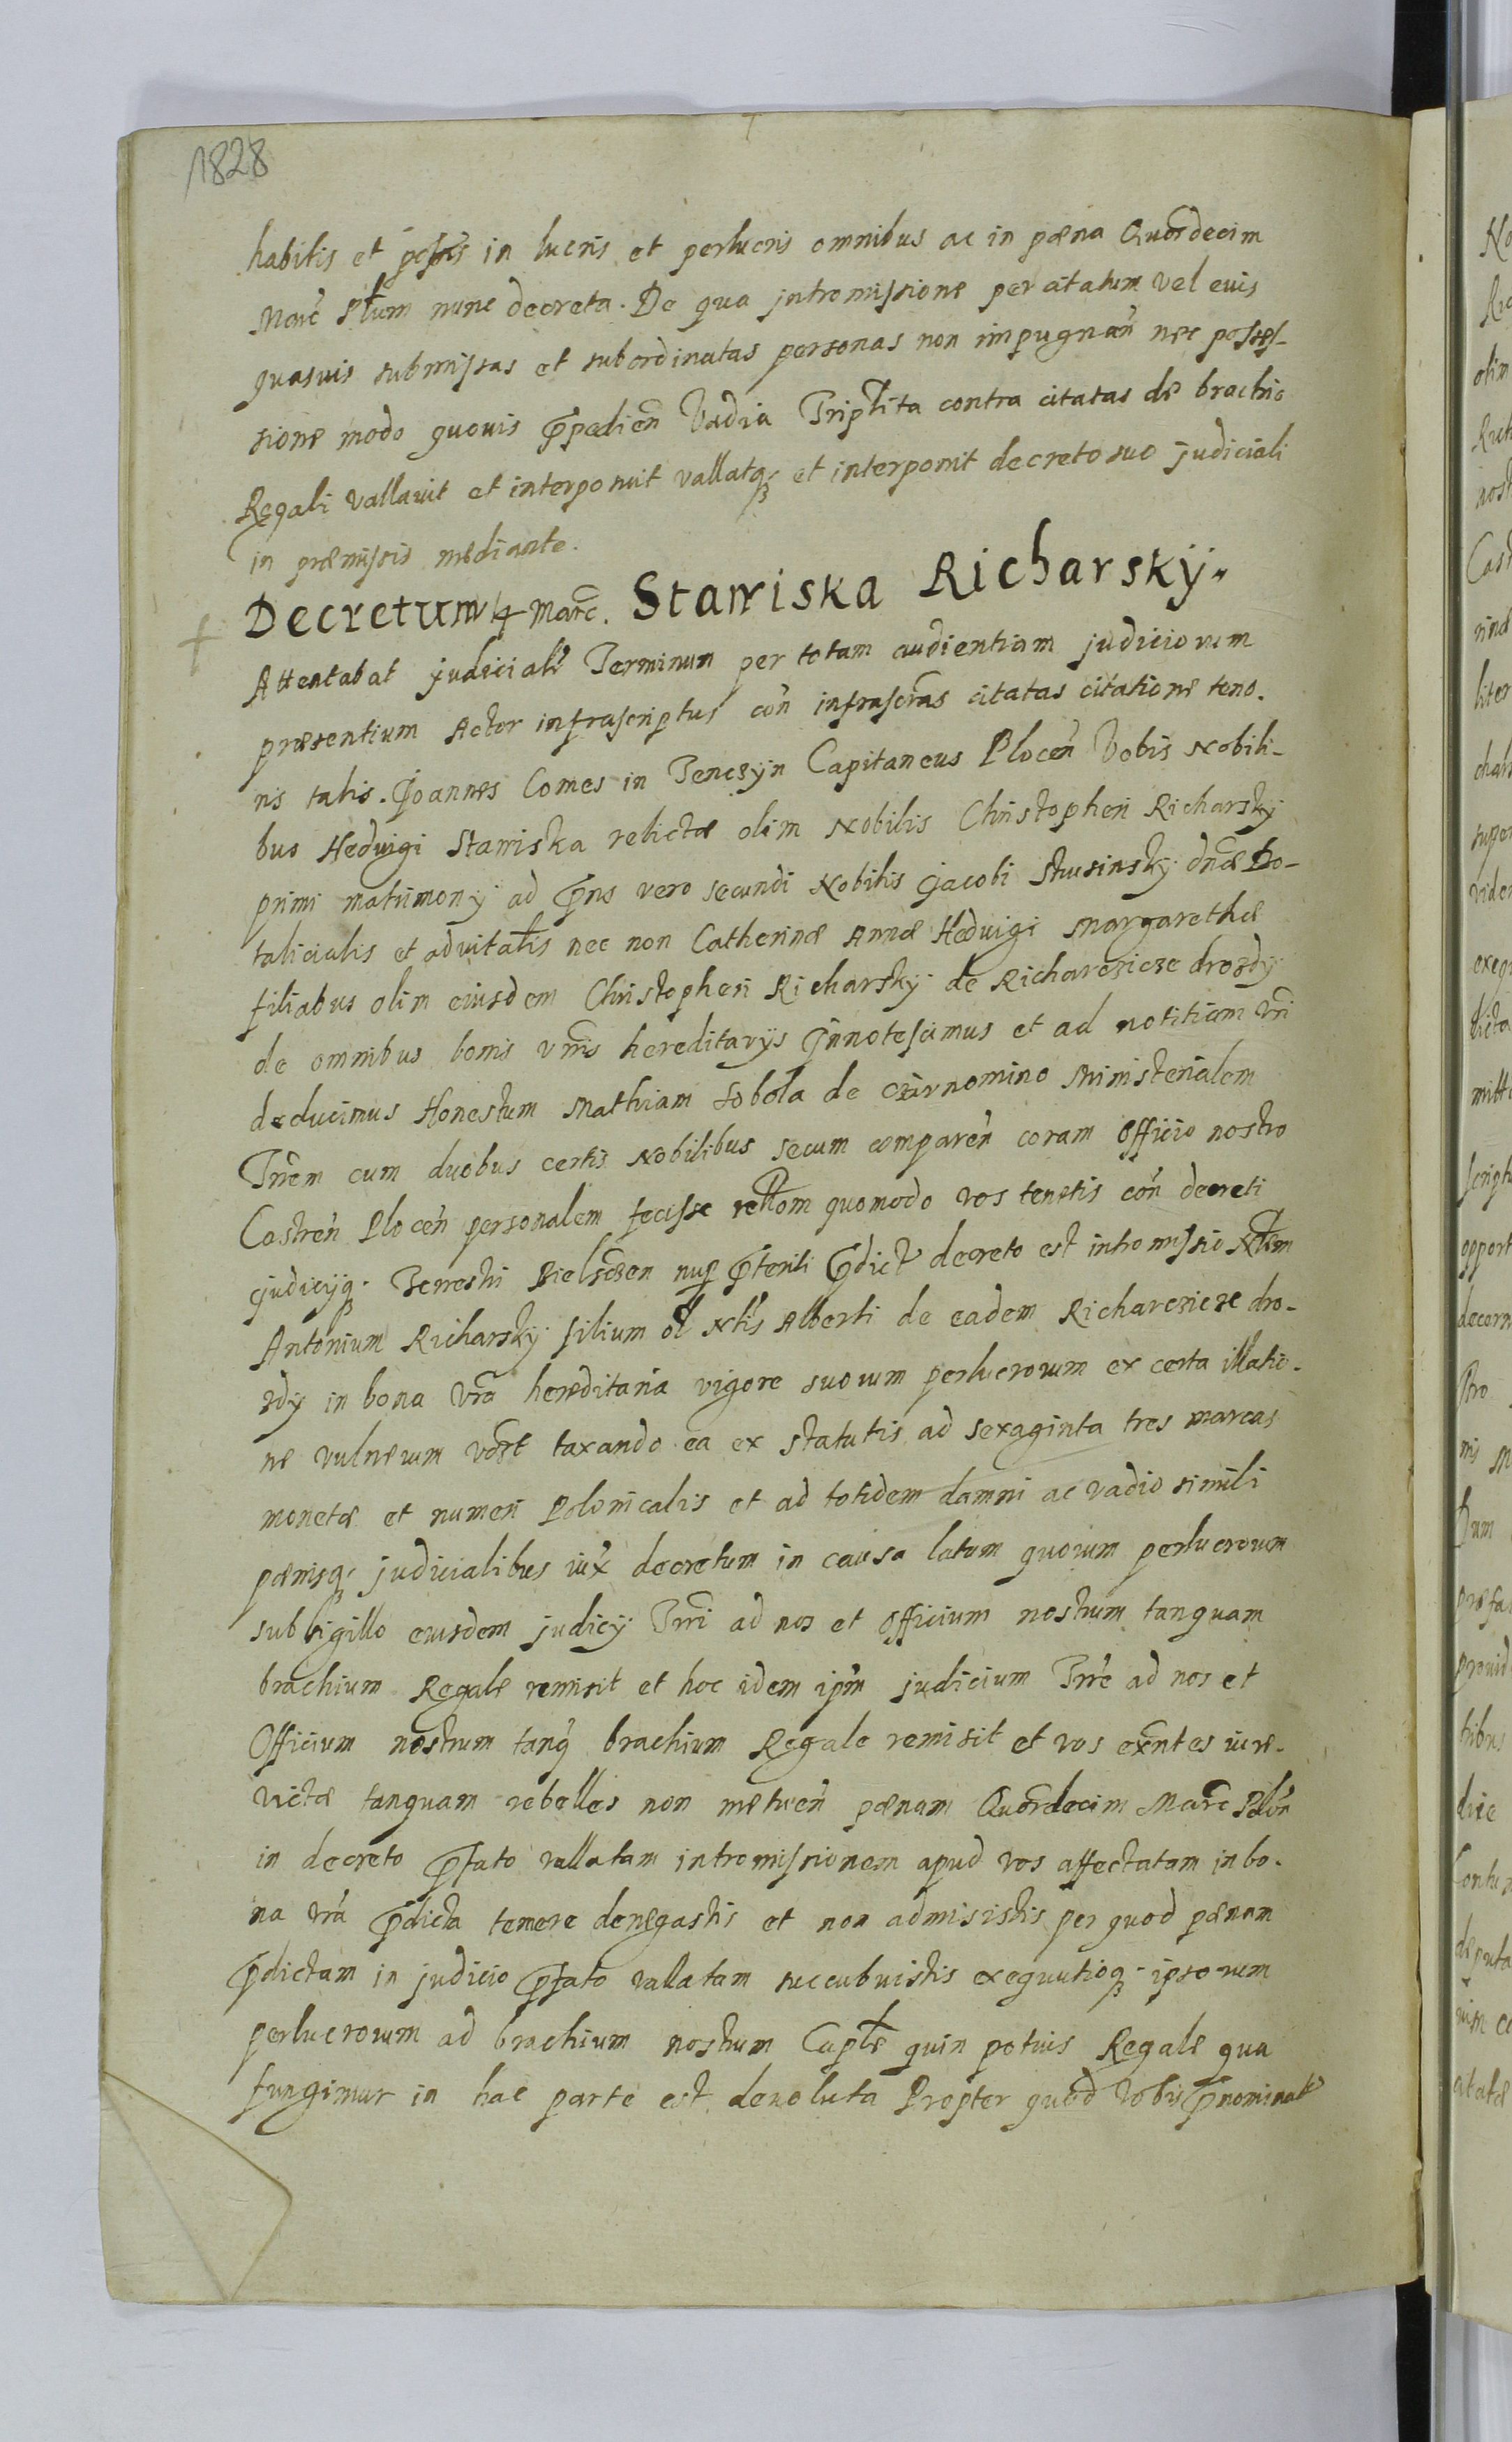 1828
habitis et positis in lucris et perlucris omnibus ac in pæna Quordecim
Marc Pltum nunc decreta. De qua intromissione per citatum vel euis
quasuis submissas et subordinatas personas non impugnan̄ nec posses-
sione modo quouis p̄pedien̄ Vadia Triplita contra citatas de brachio
Regali vallauit et interposuit vallatq; et interponit decreto suo judiciali
in præmissis mediante.
Decretum 14 Marc. Stamiska Richarskÿ.
Attentabat judicialr̄ Terminum per totam audientiam judiciorum
præsentium Actor infrascriptus con̄ infrascr̄as citatas citatione teno-
ris talis. Joannes Comes in Tenczÿn Capitaneus Plocen̄ Vobis Nobili-
bus Heduigi Stamiska relictæ olim Nobilis Christopheri Richarskÿ
primi matrimonÿ ad p̄ns vero secundi Nobilis Jacobi Stusinskÿ dnæ Do-
talicialis et advitalis nec non Catherinæ Annæ Heduigi Margarethæ
filiabus olim eiusdem Christopheri Richarskÿ de Richarczicze drozdÿ
de omnibus bonis vr̄is hereditarÿs Innotescimus et ad notitiam vr̄i
deducimus Honestum Mathiam Sobola de czarnomino Ministerialem
Trr̄em cum duobus certis Nobilibus secum comparen̄ coram Officio nostro
Castren̄ Plocen̄ personalem fecisse reltt̄om quomodo vos tenetis con̄ decreti
judicÿq; Terrestri Bielscen nup̄ p̄teriti Edict decreto est intromissio Nt̄lem
Antonium Richarskÿ filium ol Nt̄is Alberti de eadem Richarczicze dro-
zdÿ in bona vr̄a hereditaria vigore suorum perlucrorum ex certa illatio-
ne vulnerum vost taxando ea ex statutis ad sexaginta tres marcas
monetæ et numeri Polonicalis et ad totidem damni ac vadio simili
pænisq; judicialibus iux̄ decretum in causa latum quorum perlucrorum
sub sigillo eiusdem judicÿ Trr̄i ad nos et Officium nostrum tanquam
brachium Regale remisit et hoc idem ipm̄ judicium Trr̄e ad nos et
Officium nostrum tanq̄ brachium Regale remisit et vos exn̄tes iure-
victæ tanquam rebelles non metuen̄ pænam Quordecim Marc Polōn
in decreto p̄fato vallatam intromissionem apud vos affectatam in bo-
na vr̄a p̄dicta temere denegastis et non admisistis per quod pænam
p̄dictam in judicio p̄fato vallatam succubuistis exequutioq; ipsorum
perlucrorum ad brachium nostrum Caple quin potius Regale qua
fungimur in hac parte est deuoluta Propter quod vobis p̄nominat